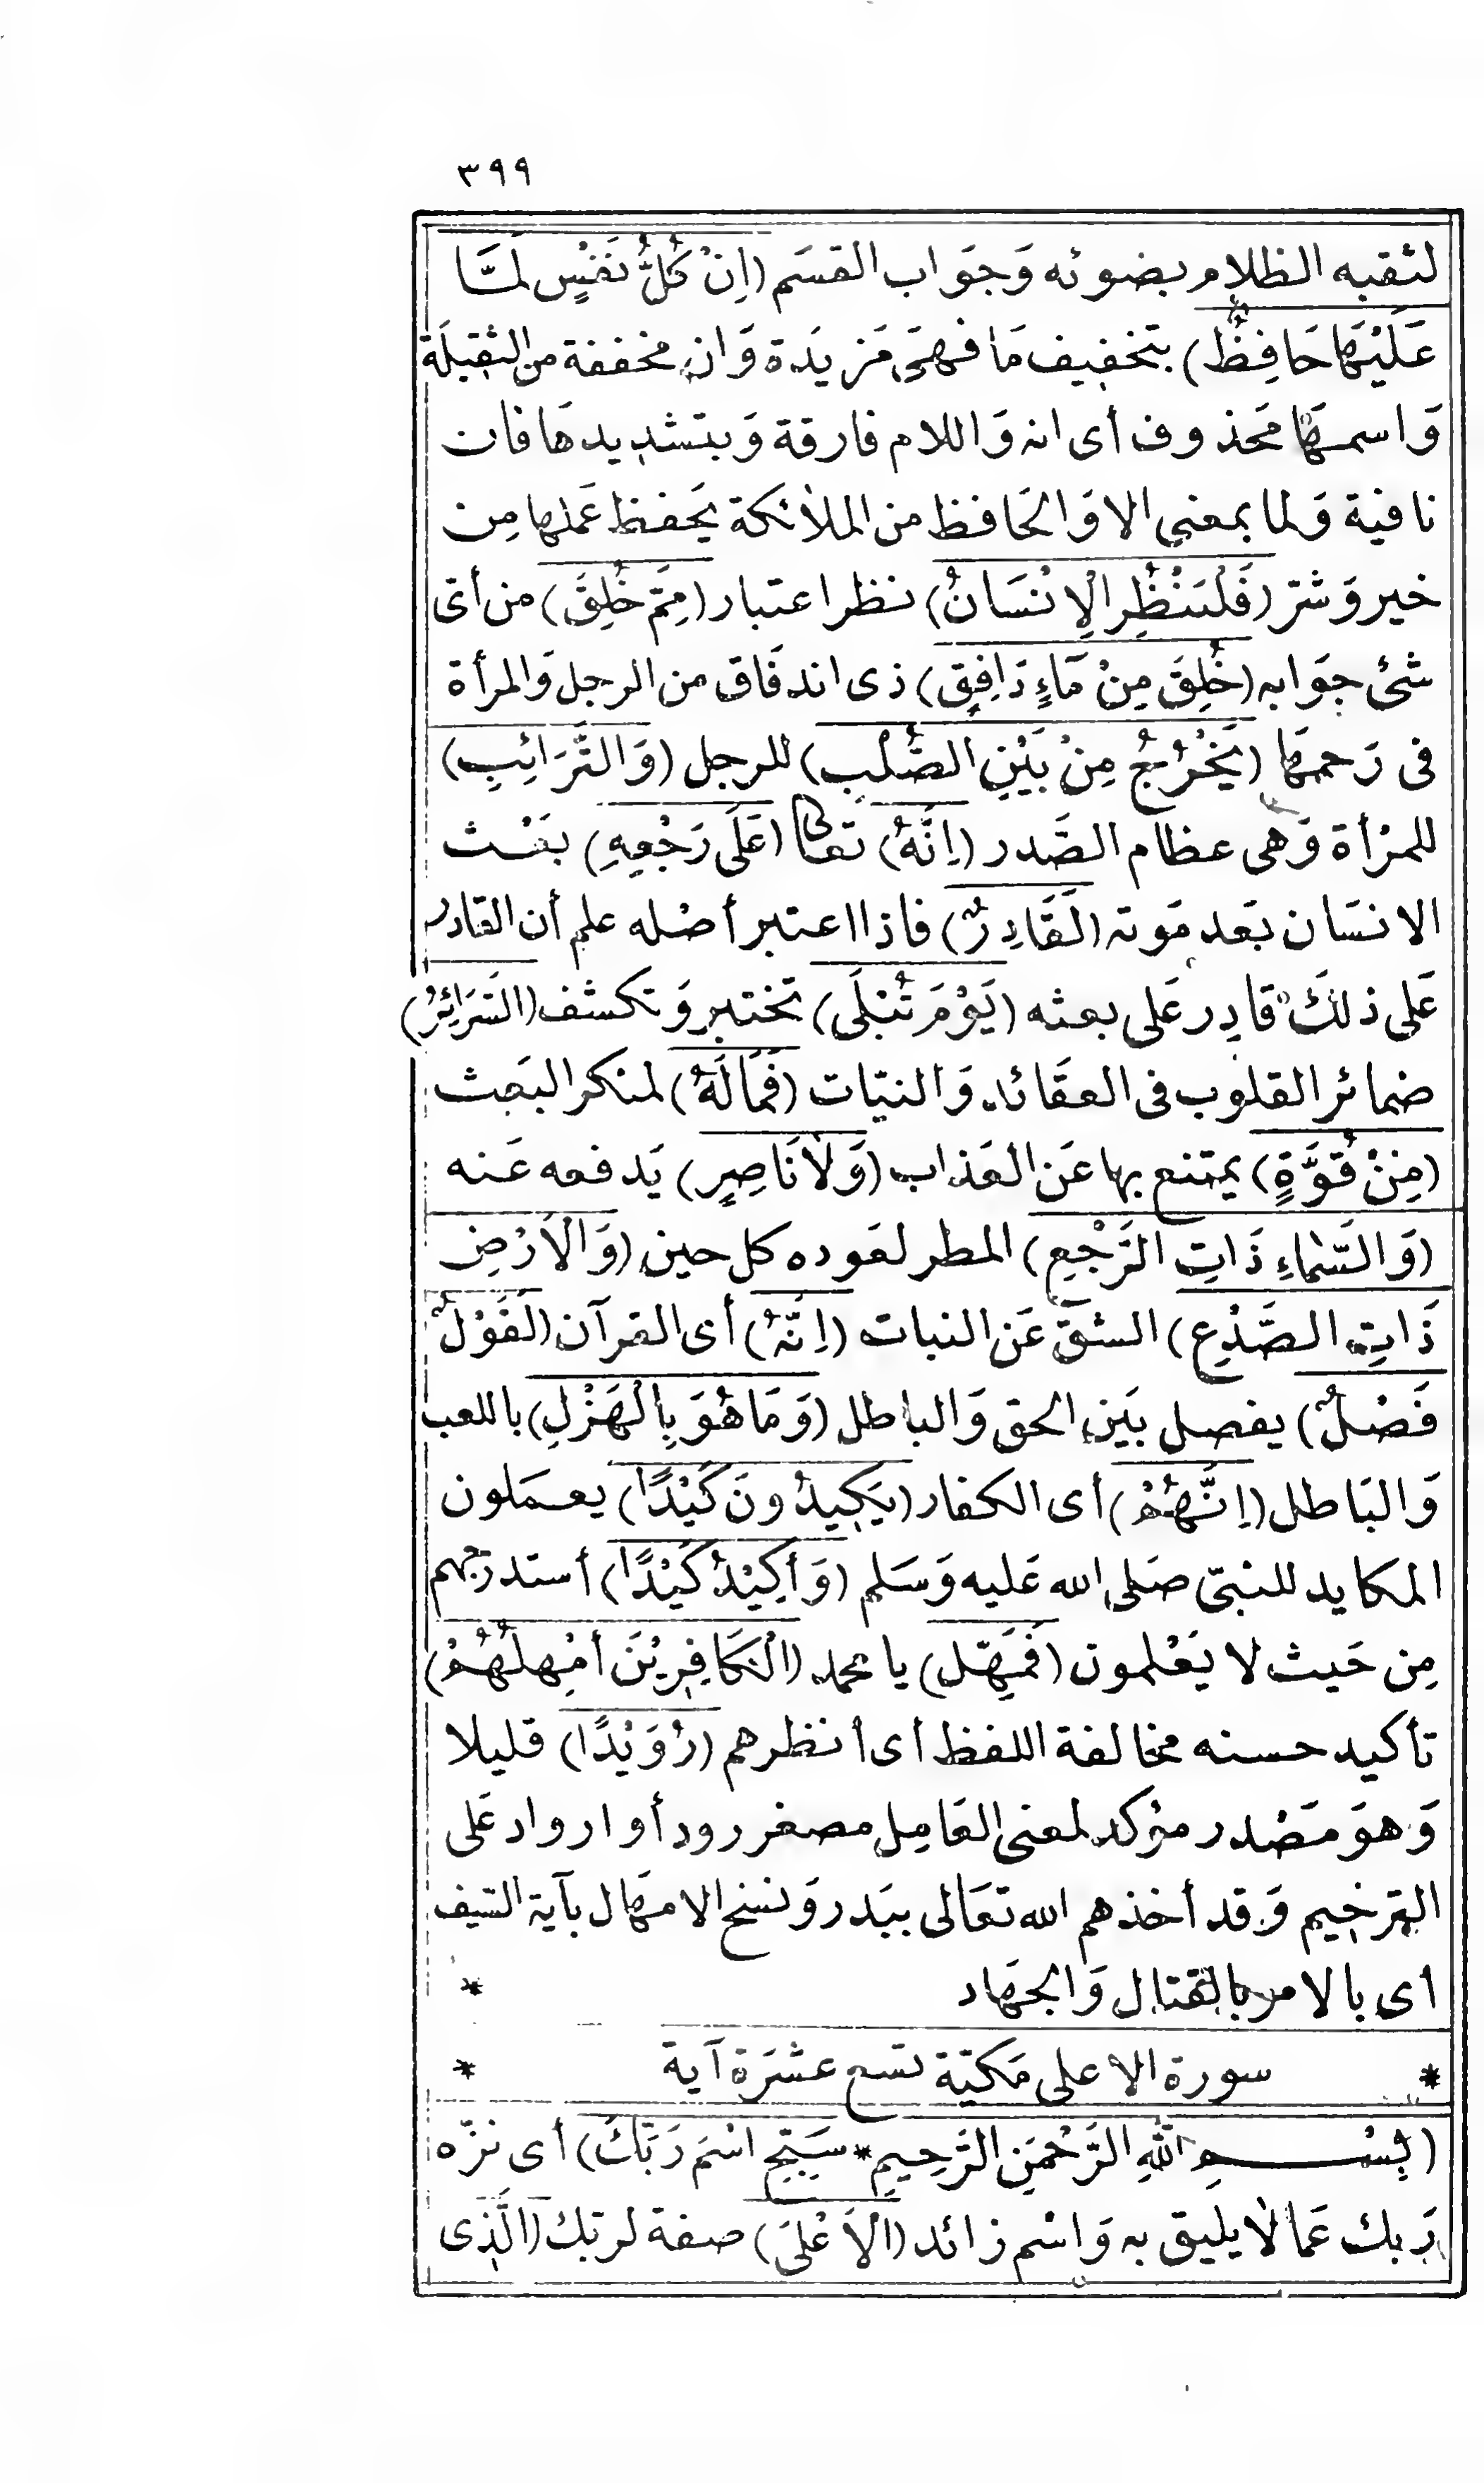 ٣٩٩
لثقبه الظلام بضوئه وَجوَاب القسَم (اِنْ كُلُّ نَفْسٍ لمَّا
عَلَيْهَا حَافِظٌ) بتخفيف مَا فهىَ مَزيدَة وَان مخففة من الثقيلَة
وَاسمهَا محَذوف أى انه وَاللام فارقة وَبتشديدهَا فان
نافية وَلما بمعنى الا وَالحَافظ من الملائكة يَحفظ عَملها مِن
خير وَشرّ (فَلْيَنْظُرِ الْاِنْسَانُ) نظر اعتبار (مِمَّ خُلِقَ) من أىّ
شئ جوَابه (خُلِقَ مِنْ مَآءٍ دَافِقٍ) ذى اندفَاق من الرجل وَالمرأة
فى رَحمهَا (يَخْرُجُ مِنْ بَيْنِ الصُّلْبِ) للرجل (وَالتَّرَائِبِ)
للمرْأة وَهى عظام الصَّدر (اِنَّهُ) تعَالى (عَلَى رَجْعِهِ) بعَث
الانسَان بَعد مَوته (لَقَادِرٌ) فاذا اعتبر أصْله علم أن القادر
عَلى ذلكَ قادِر عَلى بعثه (يَوْمَ تُبْلَى) تختبر وَتكشف (السَّرَائِرُ)
ضمائر القلوب فى العقَائد وَالنيّات (فَمَالَهُ) لمنكر البَعث
(مِنْ قُوَّةٍ) يمتنع بها عَن العَذاب (وَلَا نَاصِرٍ) يَدفعه عَنه
(وَالسَّمَاءِ ذَاتِ الرَّجْعِ) المطر لعَوده كل حين (وَالْاَرْضِ
ذَاتِ الصَّدْعِ) الشقّ عَن النبات (اِنَّهُ) أى القرآن (لَقَوْلٌ
فَصْلٌ) يفصل بَين الحق وَالباطل (وَمَا هُوَ بِالْهَزْلِ) باللعب
وَالبَاطل (اِنَّهُمْ) أى الكفار (يَكِيدُونَ كَيْدًا) يعمَلون
المكايد للنبىّ صَلى الله عَليه وَسَلم (وَأَكِيْدُ كَيْدًا) أستدرجهم
مِن حَيث لا يَعْلمون (فَمَهِّلِ) يا محمد (الْكَافِرِيْنَ أَمْهِلْهُمْ)
تأكيد حسنه مخالفة اللفظ أى أنظرهم (رُوَيْدًا) قليلا
وَهوَ مَصْدر مؤكد لمعنى العَامِل مصغر رود أو ارواد عَلى
الترخيم وَقد أخذهم الله تعَالى ببَدر وَنسخ الامهَال بآية السّيف
أى بالامر بالقتال وَالجهَاد *
* سورة الاعلى مَكيّة تسع عشرَة آية *
(بِسْمِ اللهِ الرَّحْمَنِ الرَّحِيمِ * سَبِّحِ اسْمَ رَبِّكَ) أى نزّه
رَبك عَما لا يليق به وَاسْم زائد (الْاَعْلَى) صفة لربّك (الَّذِى